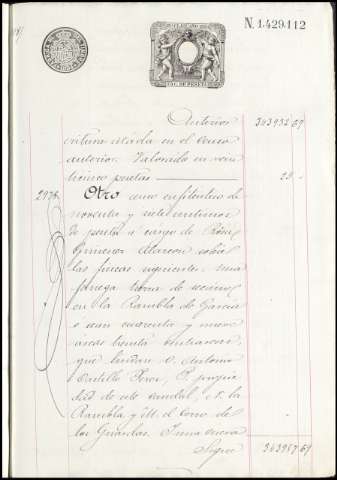 N. 1.429.112
Anterior 363932 69
critura citada en el censo
anterior. Valorado en vein
ticinco pesetas 25 -
297 Otro censo enfitéutico de
noventa y siete centimos
de peseta a cargo de
Gimenez Alarcon sobre
las fincas siguientes: una
fanega tierra de secano
en la Rambla de Garcia
o sean cuarenta y nueve
areas treinta centiareas,
que lindan O. Antonio
Castillo Perez, P. propie
dad de este caudal, N. la
Rambla y M. el Cerro de
las Guardas. Y una cueva
Sigue 363957 69